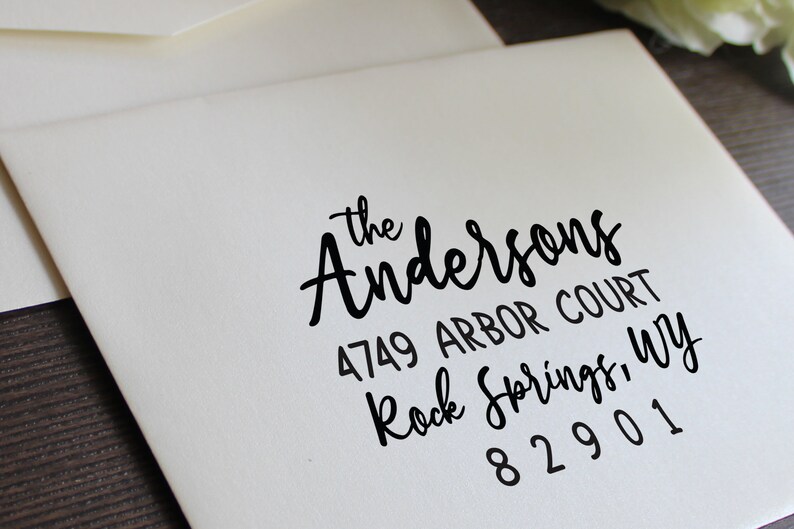 the
Andersons
4749 ARBOR COURT
Rock Springs, WY
82901